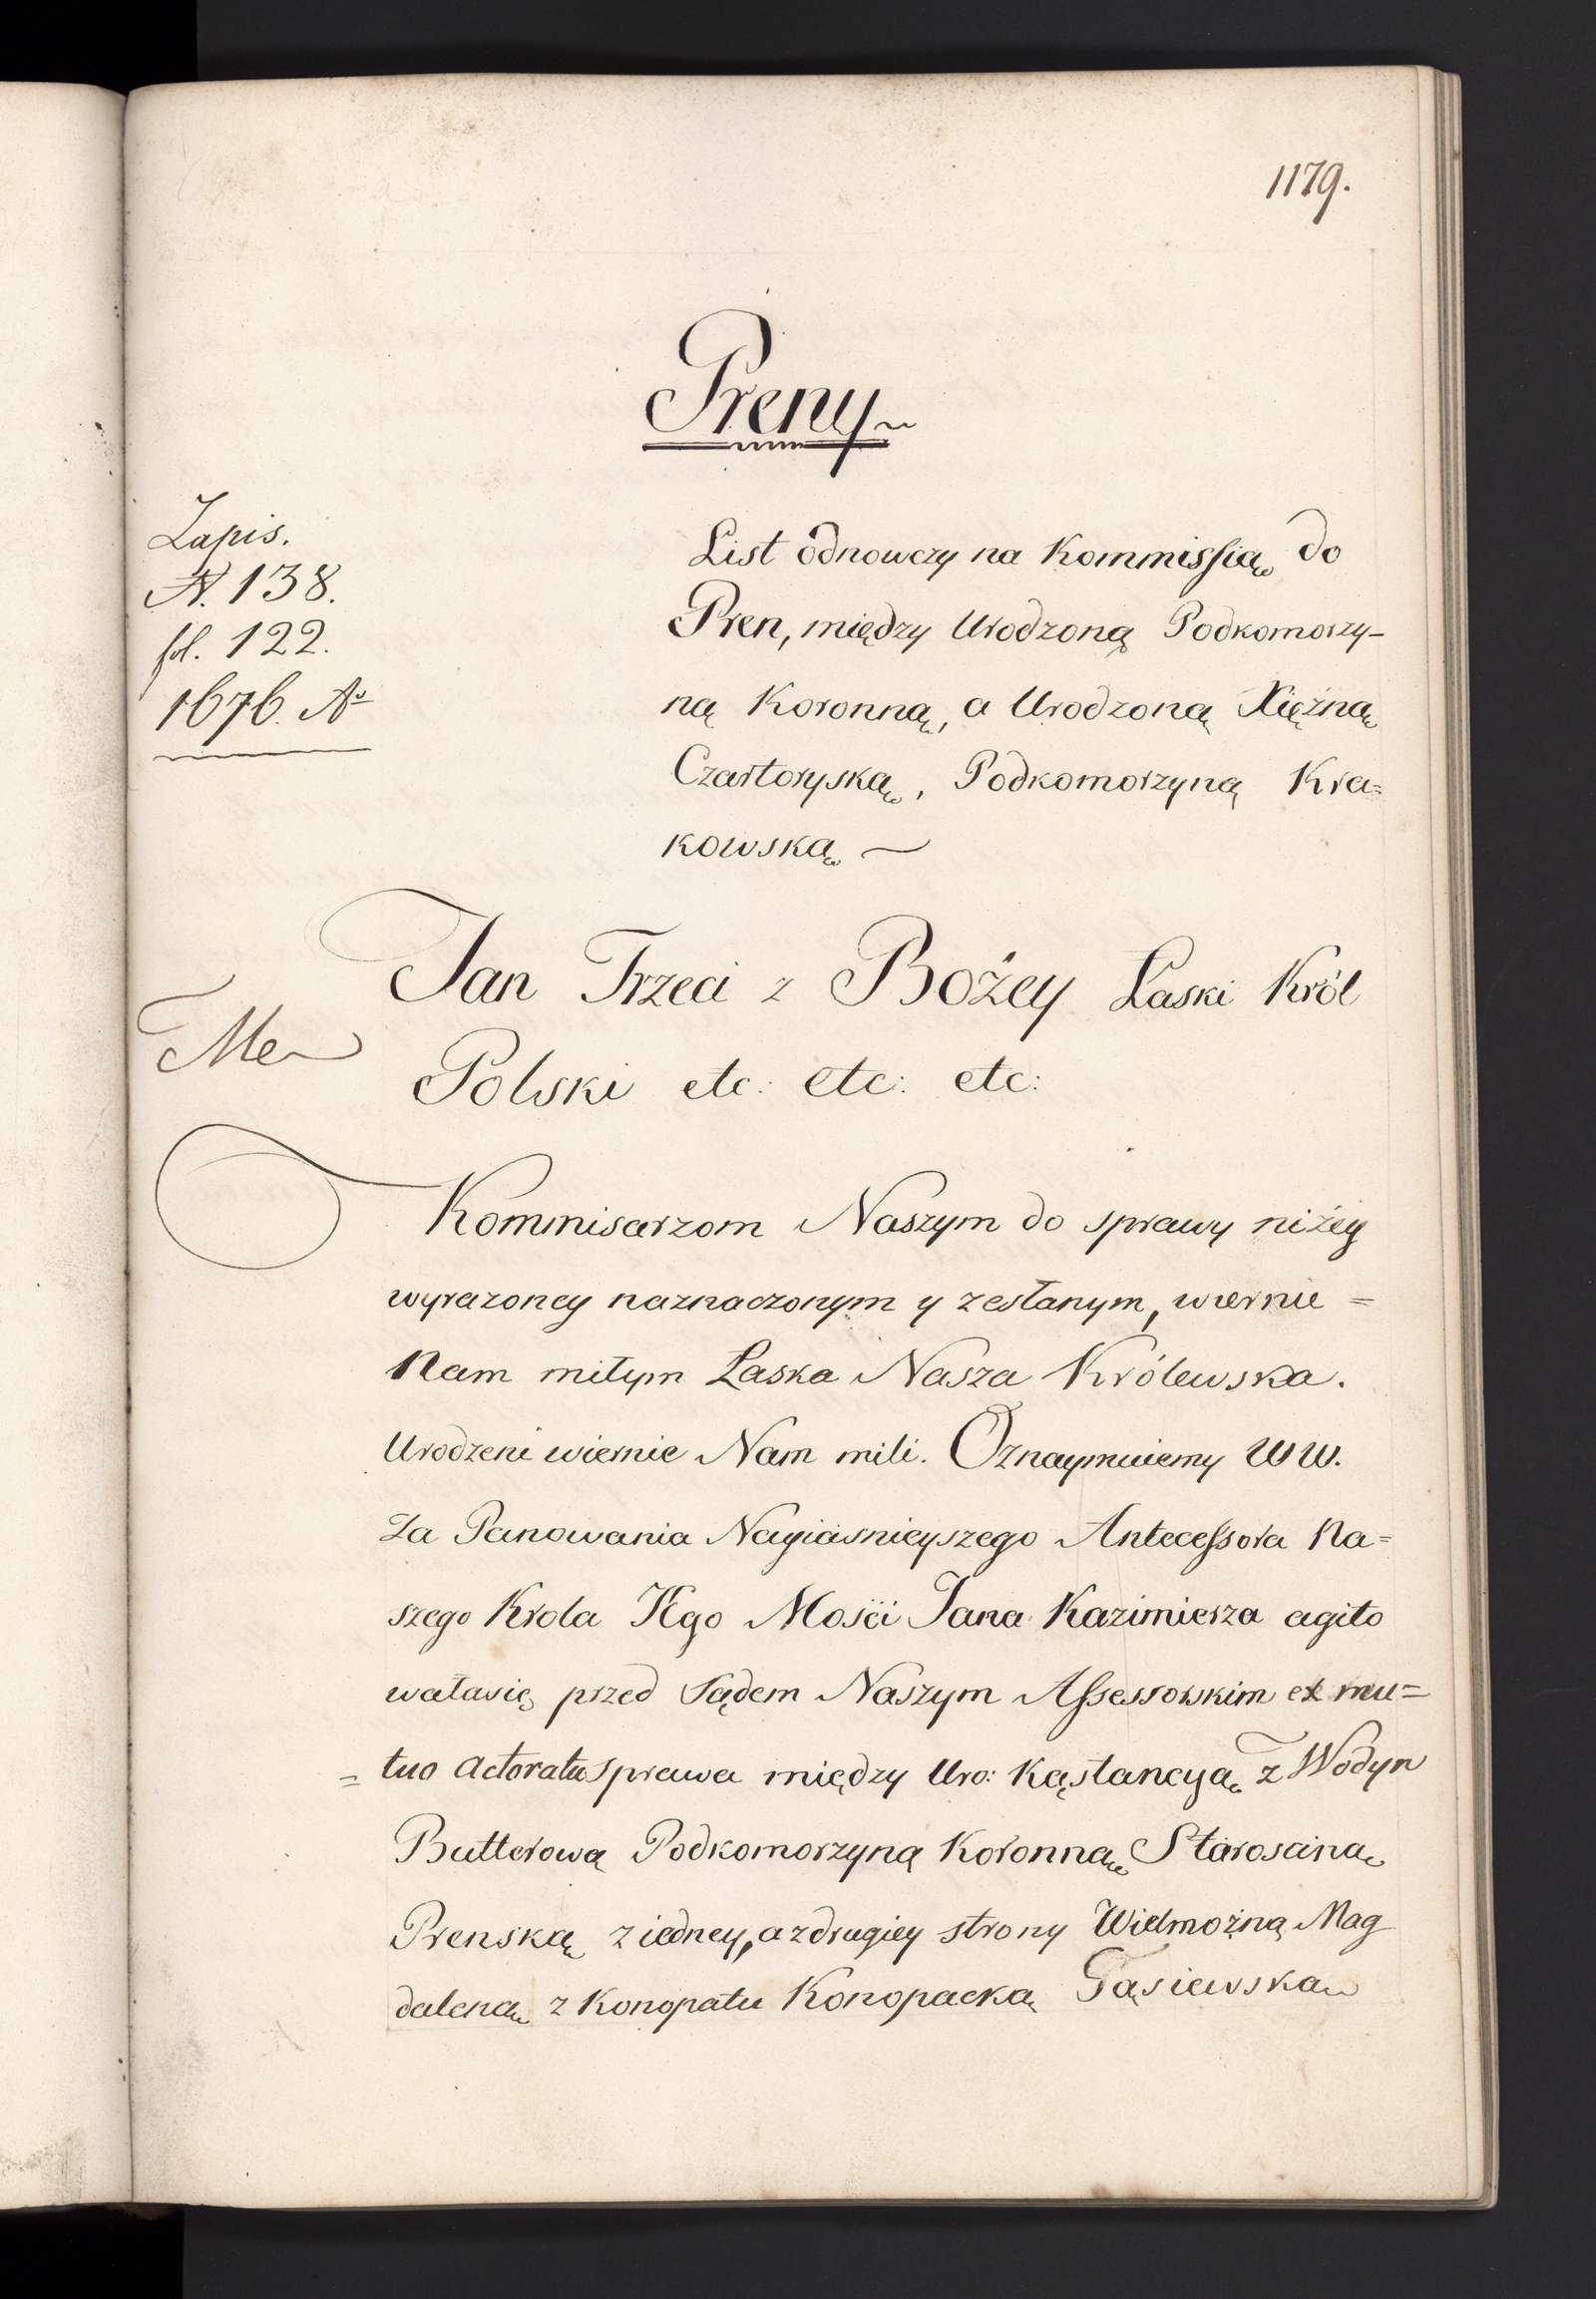 1179.
Preny
Zapis.
N. 138.
fol. 122.
1676. Ao
List odnowczy na Kommissią do
Pren, między Urodzoną Podkomorzy-
ną Koronną, a Urodzoną Xiężną
Czartoryską, Podkomorzyną Kra=
kowską
Jan Trzeci z Bożey Łaski Król
Polski etc: etc: etc:
Me
Kommisarzom Naszym do sprawy niżey
wyrazoney naznaczonym y zesłanym, wiernie =
Nam miłym Łaska Nasza Królewska.
Urodzeni wiernie Nam mili. Oznaymuiemy WW.
Za Panowania Nayiasnieyszego Antecessora Na=
szego Krola JEgo Mosci Jana Kazimierza agito
wałasię przed Sądem Naszym Assessorskim ex mu=
= tuo actoratu sprawa między Uro: Kąstancyą z Wodyn
Butterową Podkomorzyną Koronną Starosciną
Prenską z iedney, a z drugiey strony Wielmożną Mag
daleną z Konopatu Konopacką Gąsiewską